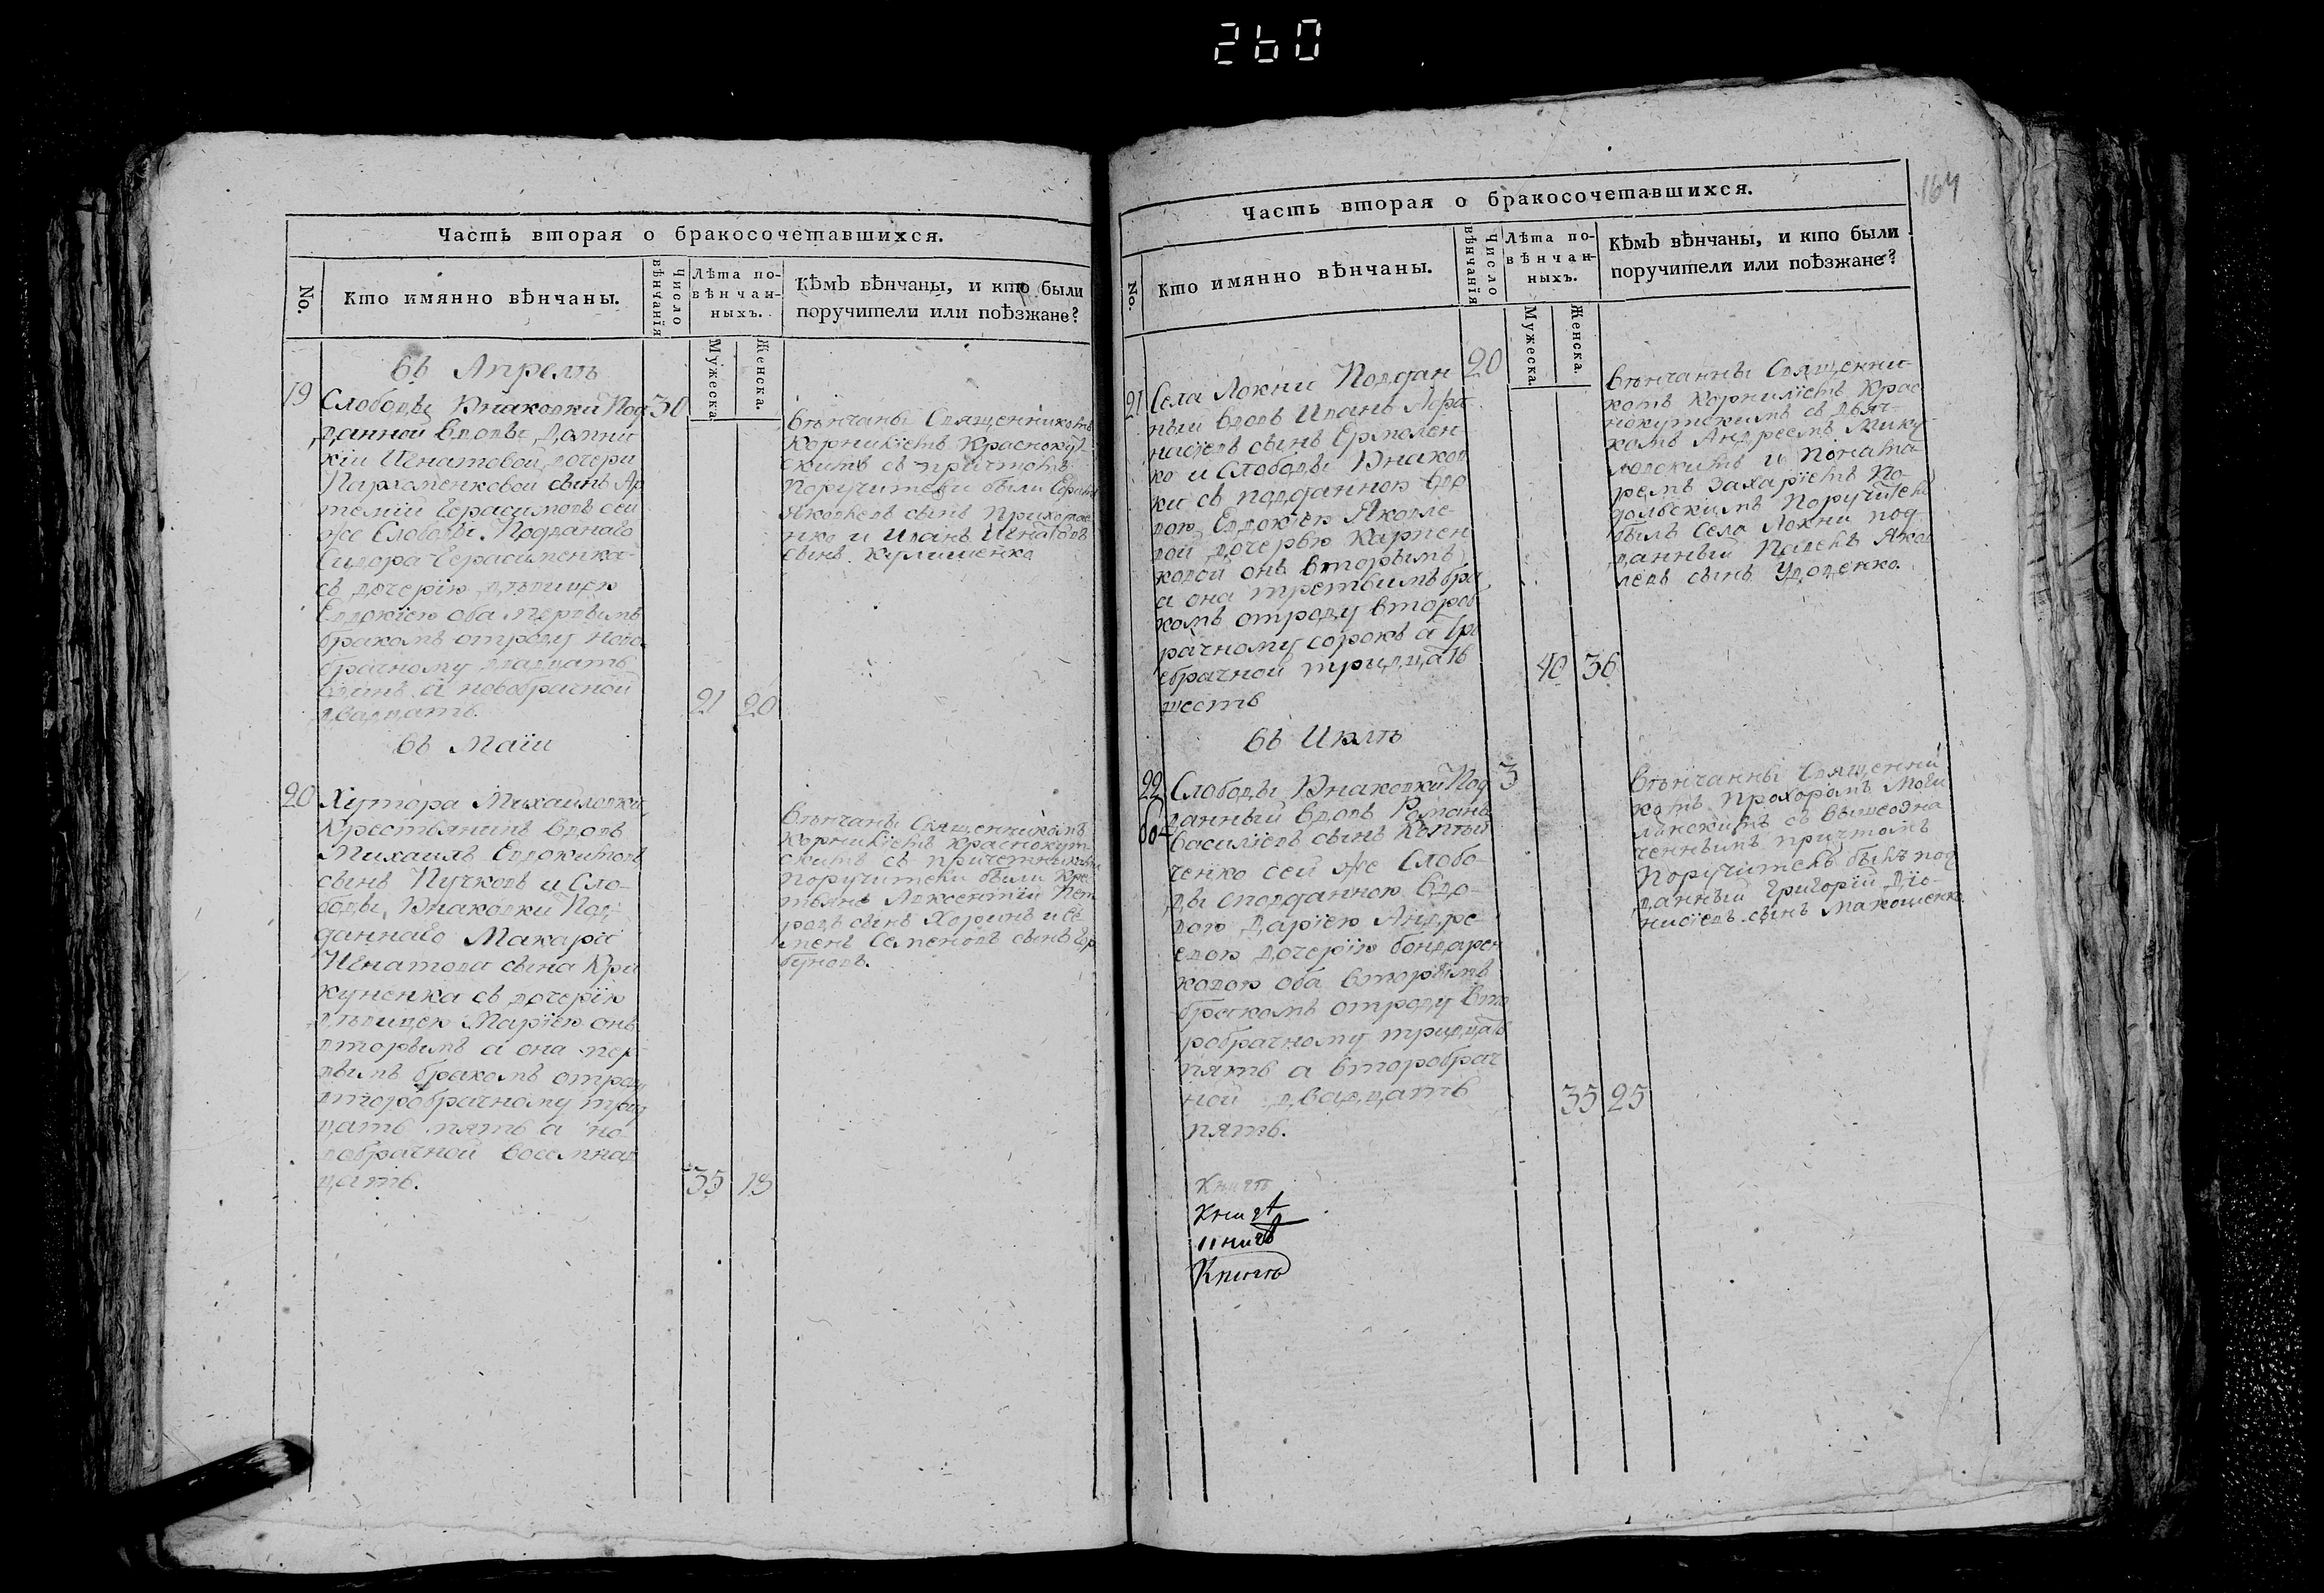 260
Часть вторая о бракосочетавшихся.
No.
Кто имянно вѣнчаны.
Число вѣнчанїя
Лѣта по-
вѣнчан-
ныхъ.
Мужеска.
Женска.
Кѣмъ вѣнчаны, и кто были
поручители или поѣзжане?
Въ Апрелѣ
19
Слободы Юнаковки Под
30
данной вдовы Домни
кіи Игнатовой дочери
Пархоменковой сынъ Ар
темій Герасимовъ сей
же Слободы Подданаго
Сидора Герасименка
съ дочерїю дѣвицею
Евдокїею оба первымъ
бракомъ отроду ново
брачному двадцать
единъ а новобрачной
двадцать.
21
20
Вѣнчаны Священникомъ
Корнилїемъ Краснокут
скимъ съ причтомъ
Поручители были
Яковлевъ сынъ
нко и Иванъ Игнатовъ
сынъ Кулишенко
Въ Маїи
20
Хутора Михайловки
Крестьянинъ вдовъ
Михаилъ Евдокимовъ
сынъ Пучковъ и Сло-
боды Юнаковки Под
даннаго Макарїя
Игнатова сына Кри
куненка съ дочерїю
дѣвицею Марїею онъ
вторымъ а она пер
вымъ бракомъ отроду
второбрачному трид
цать пять а но
вобрачной восемнад
цать.
35
18
Вѣнчаны Священникомъ
Корнилїемъ Краснокут
скимъ съ причетниками
Поручители были Кре
тьяне Авксентїй Пет
ровъ сынъ Хоринъ и Се
менъ Семеновъ сынъ Гор
буновъ.
164
Часть вторая о бракосочетавшихся.
No.
Кто имянно вѣнчаны.
Число вѣнчанїя
Лѣта по-
вѣнчан-
ныхъ.
Мужеска.
Женска.
Кѣмъ вѣнчаны, и кто были
поручители или поѣзжане?
21
Села Локни Поддан
20
ный вдовъ Иванъ Афа
насїевъ сынъ Ермолен
ко и Слободы Юнаков
ки съ подданною вдо
вою Евдокїею Яковле
вой дочерью Карпен
ковой онъ вторымъ
а она третьимъ бра
комъ отроду второб
рачному сорокъ а тре
ебрачной тридцать
шесть
40
36
Вѣнчанны Священни-
комъ Корнилїемъ Крас
нокутскимъ съ дьяч-
комъ Андреемъ Мику-
ловскимъ и Понама-
ремъ Захарїемъ По-
дольскимъ Поручитель
былъ Села Локни под
данный Павелъ Яков
левъ сынъ Удовенко.
Въ Июлѣ
22
Слободы Юнаковки Под
3
данный вдовъ Романъ
Василїевъ сынъ
ченко сей же Слобо-
ды сподданною вдо-
вою Дарїею Андре
евою дочерїю Бондарен
ковою оба вторымъ
браскомъ отроду вто
робрачному тридцать
пять а второбрач
ной двадцать
пять.
35
25
Вѣнчанны Священни
комъ Прохоромъ Моги
лянскимъ съ вышеозна
ченнымъ причтомъ
Поручитель былъ под
данный Григорїй Дїо-
нисїевъ сынъ Макошенко.
Книгѣ
Книгѣ
Книгѣ